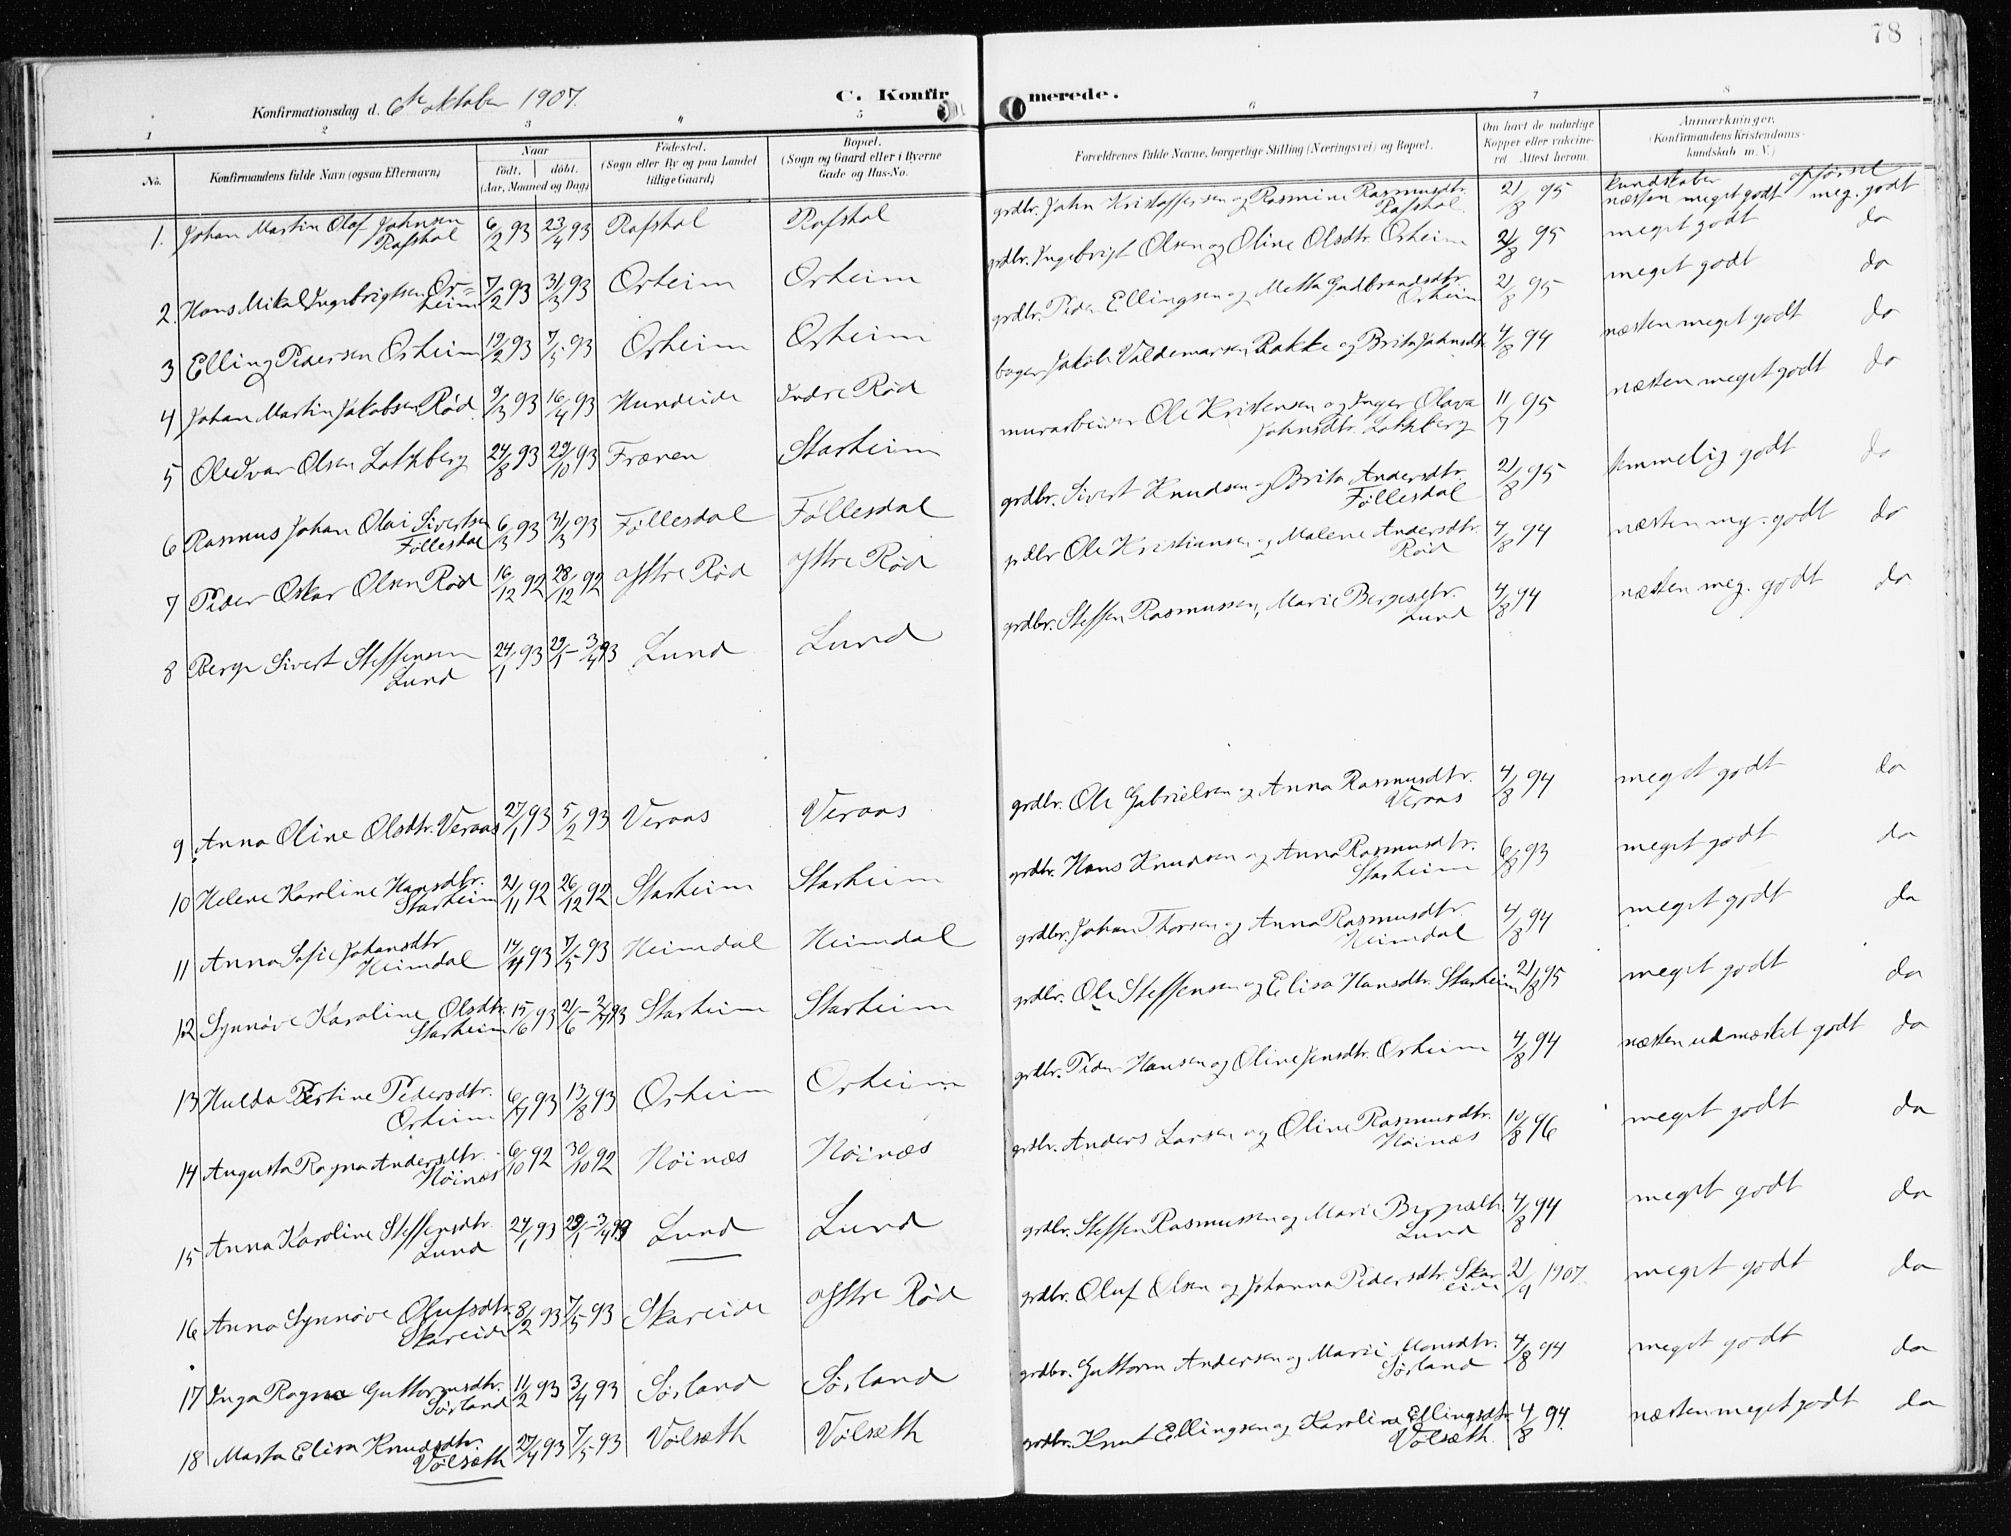 78
Konfirmationsdag d. 6te oktober 1907.
C. Konfir
merede.
1 2 3 4 5 6 7 8
No.
Konfirmandens fulde Navn (ogsaa Efternavn)
Naar
født. døbt.
(Aar, Maaned og Dag)
Fødested.
(Sogn eller By og paa Landet
tillige Gaard)
Bopæl.
(Sogn og Gaard eller i Byerne
Gade og Hus-No.
Forældrenes fulde Navne, borgerlige Stilling (Næringsvei) og Bopæl.
Om havt de naturlige
Kopper eller vakcine-
ret Attest herom.
Anmærkninger.
(Konfirmandens Kristendoms-
kundskab m. V.)
kundskaber opførsel
1. Johan Martin Olaf Johnsen Rafshol 6/2 93 23/4 93 Rafshol Rafshol grdbr. John Kristoffersen og Rasmine Rasmusdtr. Rafshol 21/8 95 næsten meget godt meg. godt
2. Hans Mikal Ingebrigtsen Orheim 7/2 93 31/3 93 Orheim Orheim grdbr. Ingebrigt Olsen og Oline Olsdtr. Orheim 21/8 95 meget godt do
3 Elling Pedersen Orheim 19/2 93 7/5 93 Orheim Orheim grdbr. Peder Ellingsen og Metta Gudbrandsdtr. Orheim 21/8 95 meget godt do
4 Johan Martin Jakobsen Rød 9/3 93 16/4 93 Hundeide Indre Rød bager Jakob Valdemarsen Bakke og Brita Johnsdtr. 4/8 94 næsten meget godt do
5 Ole Ivar Olsen 24/8 93 29/10 93 Frænen Starheim murarbeider Ole Kristensen og Inger Olava Johnsdtr. 11/7 95 næsten meget godt do
6 Rasmus Johan Olai Sivertsen Føllesdal 6/3 93 31/3 93 Føllesdal Føllesdal grdbr. Sivert Knudsen og Brita Andersdtr. Føllesdal 21/8 95 temmelig godt do
7 Peder Oskar Olsen Rød 16/12 92 28/12 92 østre Rød østre Rød grdbr Ole Kristiansen og Malene Andersdtr. Rød 4/8 94 næsten meg. godt do
8 Berge Sivert Steffensen Lund 24/1 93 29/1 – 3/4 93 Lund Lund grdbr. Steffen Rasmussen, Marie Bergesdtr. Lund 4/8 94 næsten meg. godt do
9 Anna Oline Olsdtr. Veraas 27/1 93 5/2 93 Veraas Veraas grdbr. Ole Gabrielsen og Anna Rasmusdtr. Veraas 4/8 94 meget godt do
10 Helene Karoline Hansdtr. Starheim 21/11 92 26/12 92 Starheim Starheim grdbr. Hans Knudsen og Anna Rasmusdtr. Starheim 6/8 93 meget godt do
11 Anna Sofie Johansdtr Heimdal 14/4 93 7/5 93 Heimdal Heimdal grdbr. Johan Thorsen og Anna Rasmusdtr. Heimdal 4/8 94 meget godt do
12 Synnøve Karoline Olsdtr. Starheim 15/6 93 21/6 – 2/7 93 Starheim Starheim grdbr. Ole Steffensen og Elisa Hansdtr. Starheim 21/8 95 meget godt do
13 Hulda Bertine Pedersdtr. Orheim 6/7 93 13/8 93 Orheim Orheim grdbr. Peder Hansen og Oline Jensdtr. Orheim 4/8 94 næsten udmærket godt do
14 Augusta Ragna Andersdtr. Høinæs 6/10 92 30/10 92 Høinæs Høinæs grdbr. Anders Larsen og Oline Rasmusdtr. Høinæs 10/8 96 meget godt do
15 Anna Karoline Steffensdtr. Lund 24/1 93 29/1 – 3/4 93 Lund Lund grdbr. Steffen Rasmussen og Marie Bergesdtr. Lund 4/8 94 meget godt do
16 Anna Synnøve Olufsdtr. Skareide 8/2 93 7/5 93 Skareide østre Rød grdbr. Oluf Olsen og Johanna Pedersdtr. Skareide 21/9 1907. meget godt do
17 Inga Ragna Guttormsdtr. Sørland 11/2 93 3/4 93 Sørland Sørland grdbr. Guttorm Andersen og Marie Monsdtr. Sørland 4/8 94 meget godt do
18 Marta Elisa Knudsdtr. Vølsæth 27/4 93 7/5 93 Vølsæth Vølsæth grdbr. Knut Ellingsen og Karoline Ellingsdtr. Vølsæth. 4/8 94. næsten meget godt do